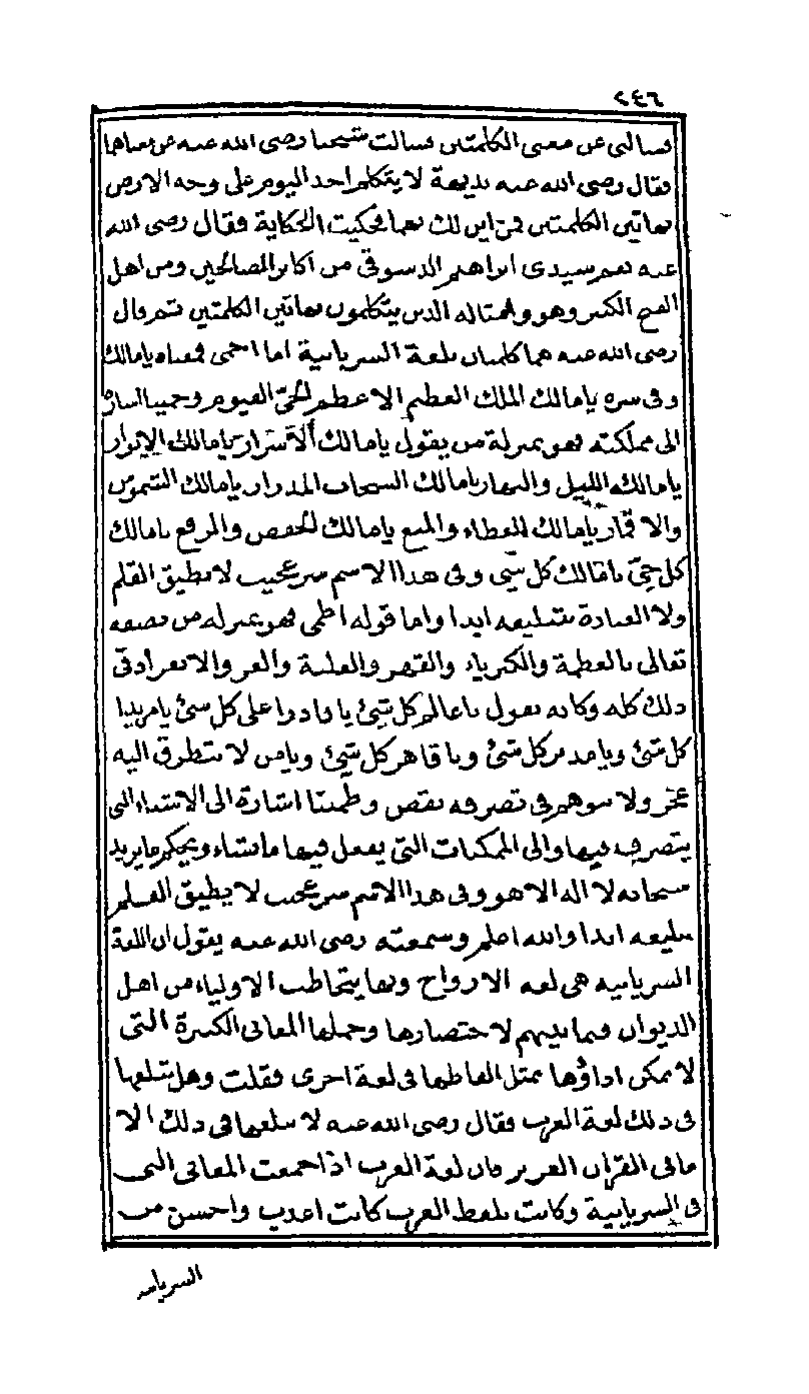 ٢٤٦
فسألني عن معنى الكلمتين فسالت شيخنا رضى الله عنه عن معناهما
فقال رضى الله عنه بديهة لا يتكلم احد اليوم على وجه الارض
بهاتين الكلمتين فمن اين لك بهما فحكيت الحكاية فقال رضى الله
عنه نعم سيدى ابراهيم الدسوقي من اكابر الصالحين ومن اهل
الفتح الكبير وهو وامثاله الذين يتكلمون بهاتين الكلمتين ثم قال
رضى الله عنه هما كلمتان بلغة السريانية اما احمى فمعناه يا مالك
وفى سره يا مالك الملك العظيم الاعظم الحيّ القيوم وحميثا اشارة
الى مملكته فهو بمنزلة من يقول يا مالك الاسرار يا مالك الانوار
يا مالك الليل والنهار يا مالك السحاب المدرار يا مالك الشموس
والاقمار يا مالك العطاء والمنع يا مالك الخفض والرفع يا مالك
كل حيّ يا مالك كل شى وفى هذا الاسم سر عجيب لا يطيق القلم
ولا العبارة تبليغه ابدا واما قوله اطمى فهو بمنزله من يصفه
تعالى بالعظمة والكبرياء والقهر والغلبة والعز والانفراد فى
ذلك كله وكانه يقول يا عالم كل شئ يا قادرا على كل شئ يا مريدا
كل شئ ويا مدبر كل شئ ويا قاهر كل شئ ويا من لا يتطرق اليه
عجز ولا يتوهم في تصرفه نقص وطميثا اشارة الى الاشياء التى
يتصرف فيها والى الممكنات التي يفعل فيها ما يشاء ويحكم ما يريد
سبحانه لا اله الا هو وفى هذا الاسم سر عجيب لا يطيق القلم
تبليغه ابدا والله اعلم وسمعته رضى الله عنه يقول ان اللغة
السريانيه هى لغه الارواح وبها يتخاطب الاولياء من اهل
الديوان فيما بينهم لاختصارها وحملها المعانى الكثيرة التى
لا يمكن اداؤها بمثل الفاظها فى لغة اخرى فقلت وهل تبلغها
فى ذلك لغة العرب فقال رضى الله عنه لا يبلغها فى ذلك الا
ما فى القران العزيز فان لغة العرب اذا جمعت المعانى التى
فى السريانية وكانت بلفظ العرب كانت اعذب واحسن من
السريانيه